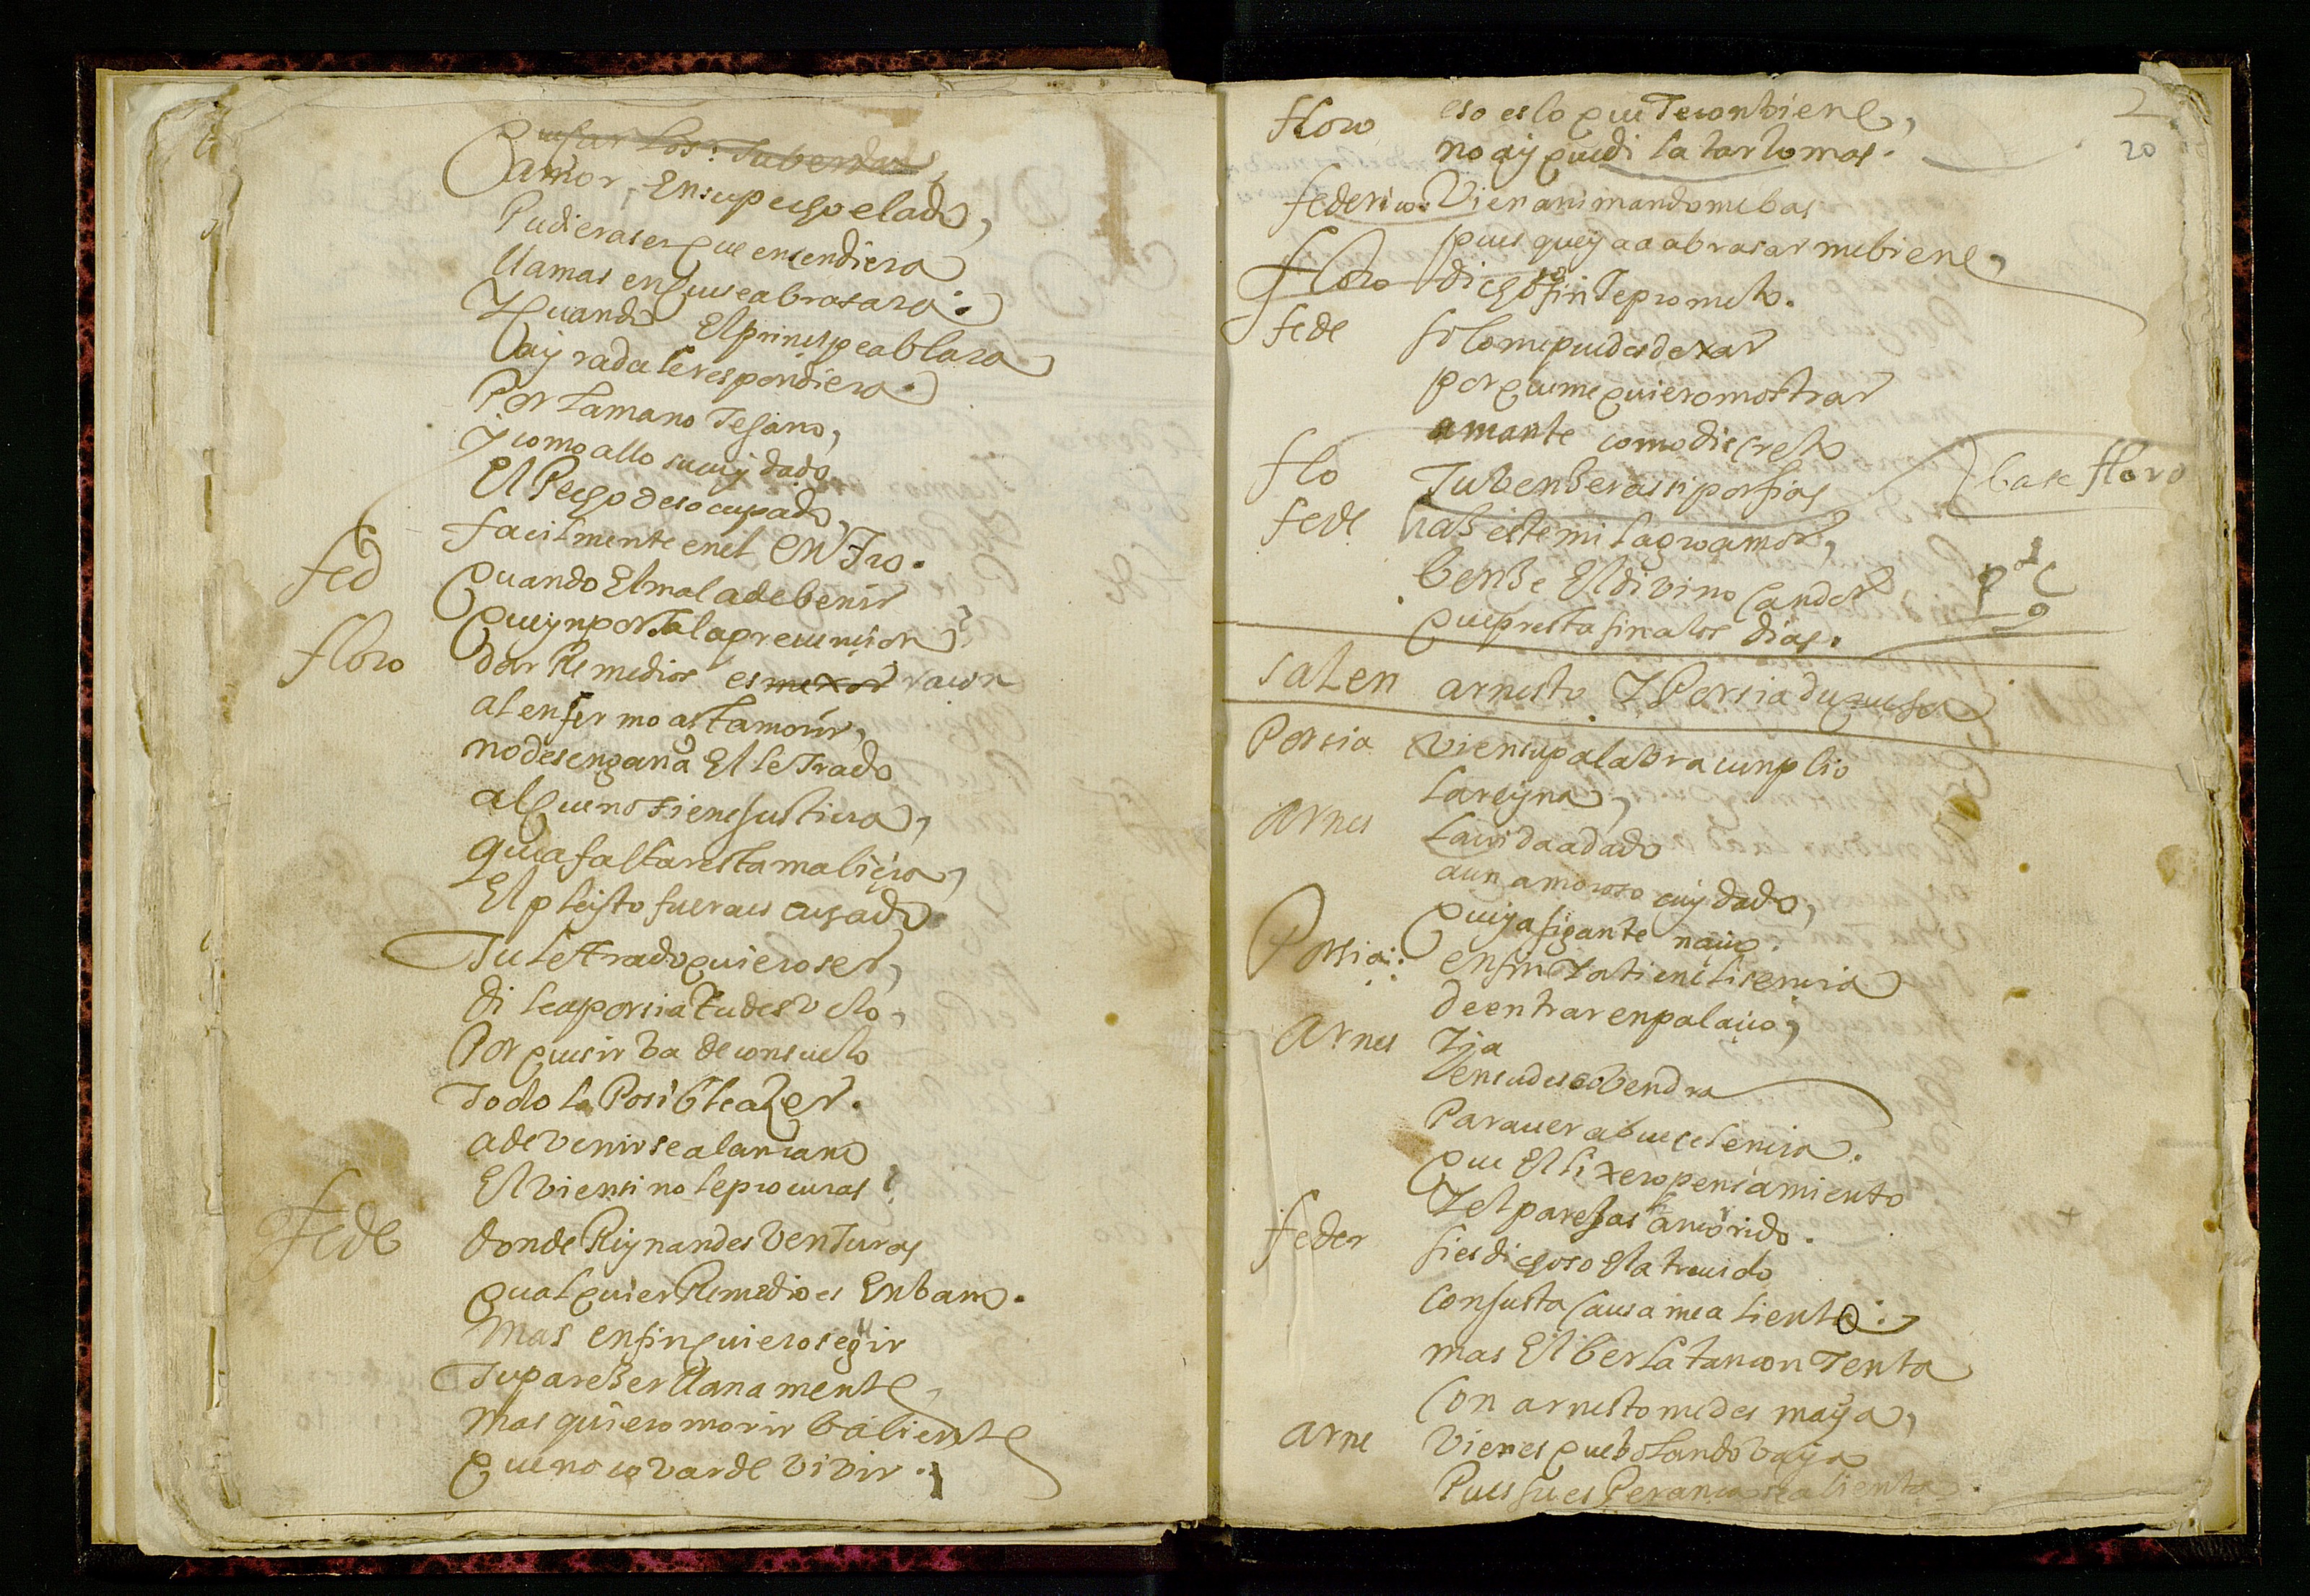 amor, En su pecho elado,
Pudiera ser que encendiera
llamas en que se abrasara:
Y quando El prinçipe ablara
ayrada le respondiera.
Por la mano Te gano,
Y como allo su cuydado
El Pecho desocupado,
facilmente en el EnTro.
fed Quando El mal a de benir
que ynporTa la preuençion?
floro dar Remedios es mexor raçon
al enfermo asta morir,
no desengaña El leTrado
al que no Tiene Justiçia,
que a faltar esta maliçia,
El pleyto fuera escusado
Tu leTrado quiero ser,
di le a porsia tu desvelo,
Por que sirba de consuelo
Todo lo Posible azer.
a de venirse a la mano
El vien si no le procuras?
fede donde Reynan desvenTuras
qualquier Remedio es En bano.
mas en fin quiero seguir
Tu pareÇer llanamente,
mas quiero morir baliente
que no covarde vivir.
2
20
floro eso es lo que Te conbiene,
no ay que dilatarlo mas.
federico: Vien animandome bas
pues que ya a abrasarme biene,
floro dichoso fin Te prometo.
fede solo me puedes dexar
porque me quiero mostrar
amante como discreto
flo Tu benÇeras si porfias base floro
fede haÇ este milagro amor,
benÇe El divino candor
que presta sin a los dias.
salen arnesto Y Porsia duquesa
Porsia Vien su palabra cunplio
la reyna,
arnes la vida a dado
a un amoroso cuydado,
que ya gigante naçio.
Porsia: en fin Ya tiene liçençia
de entrar en palaçio,
arnes Ya
en su deseo bendra
Para ver a buecelençia.
que El lixero pensamiento
Y el pareÇas
feder si es dichoso El atrevido
con Justa causa me aliento:
mas El berla tan conTenta
con arnesto me desmaya,
arne Vien es que bolando vaya
Pues su esPerança se alienta.